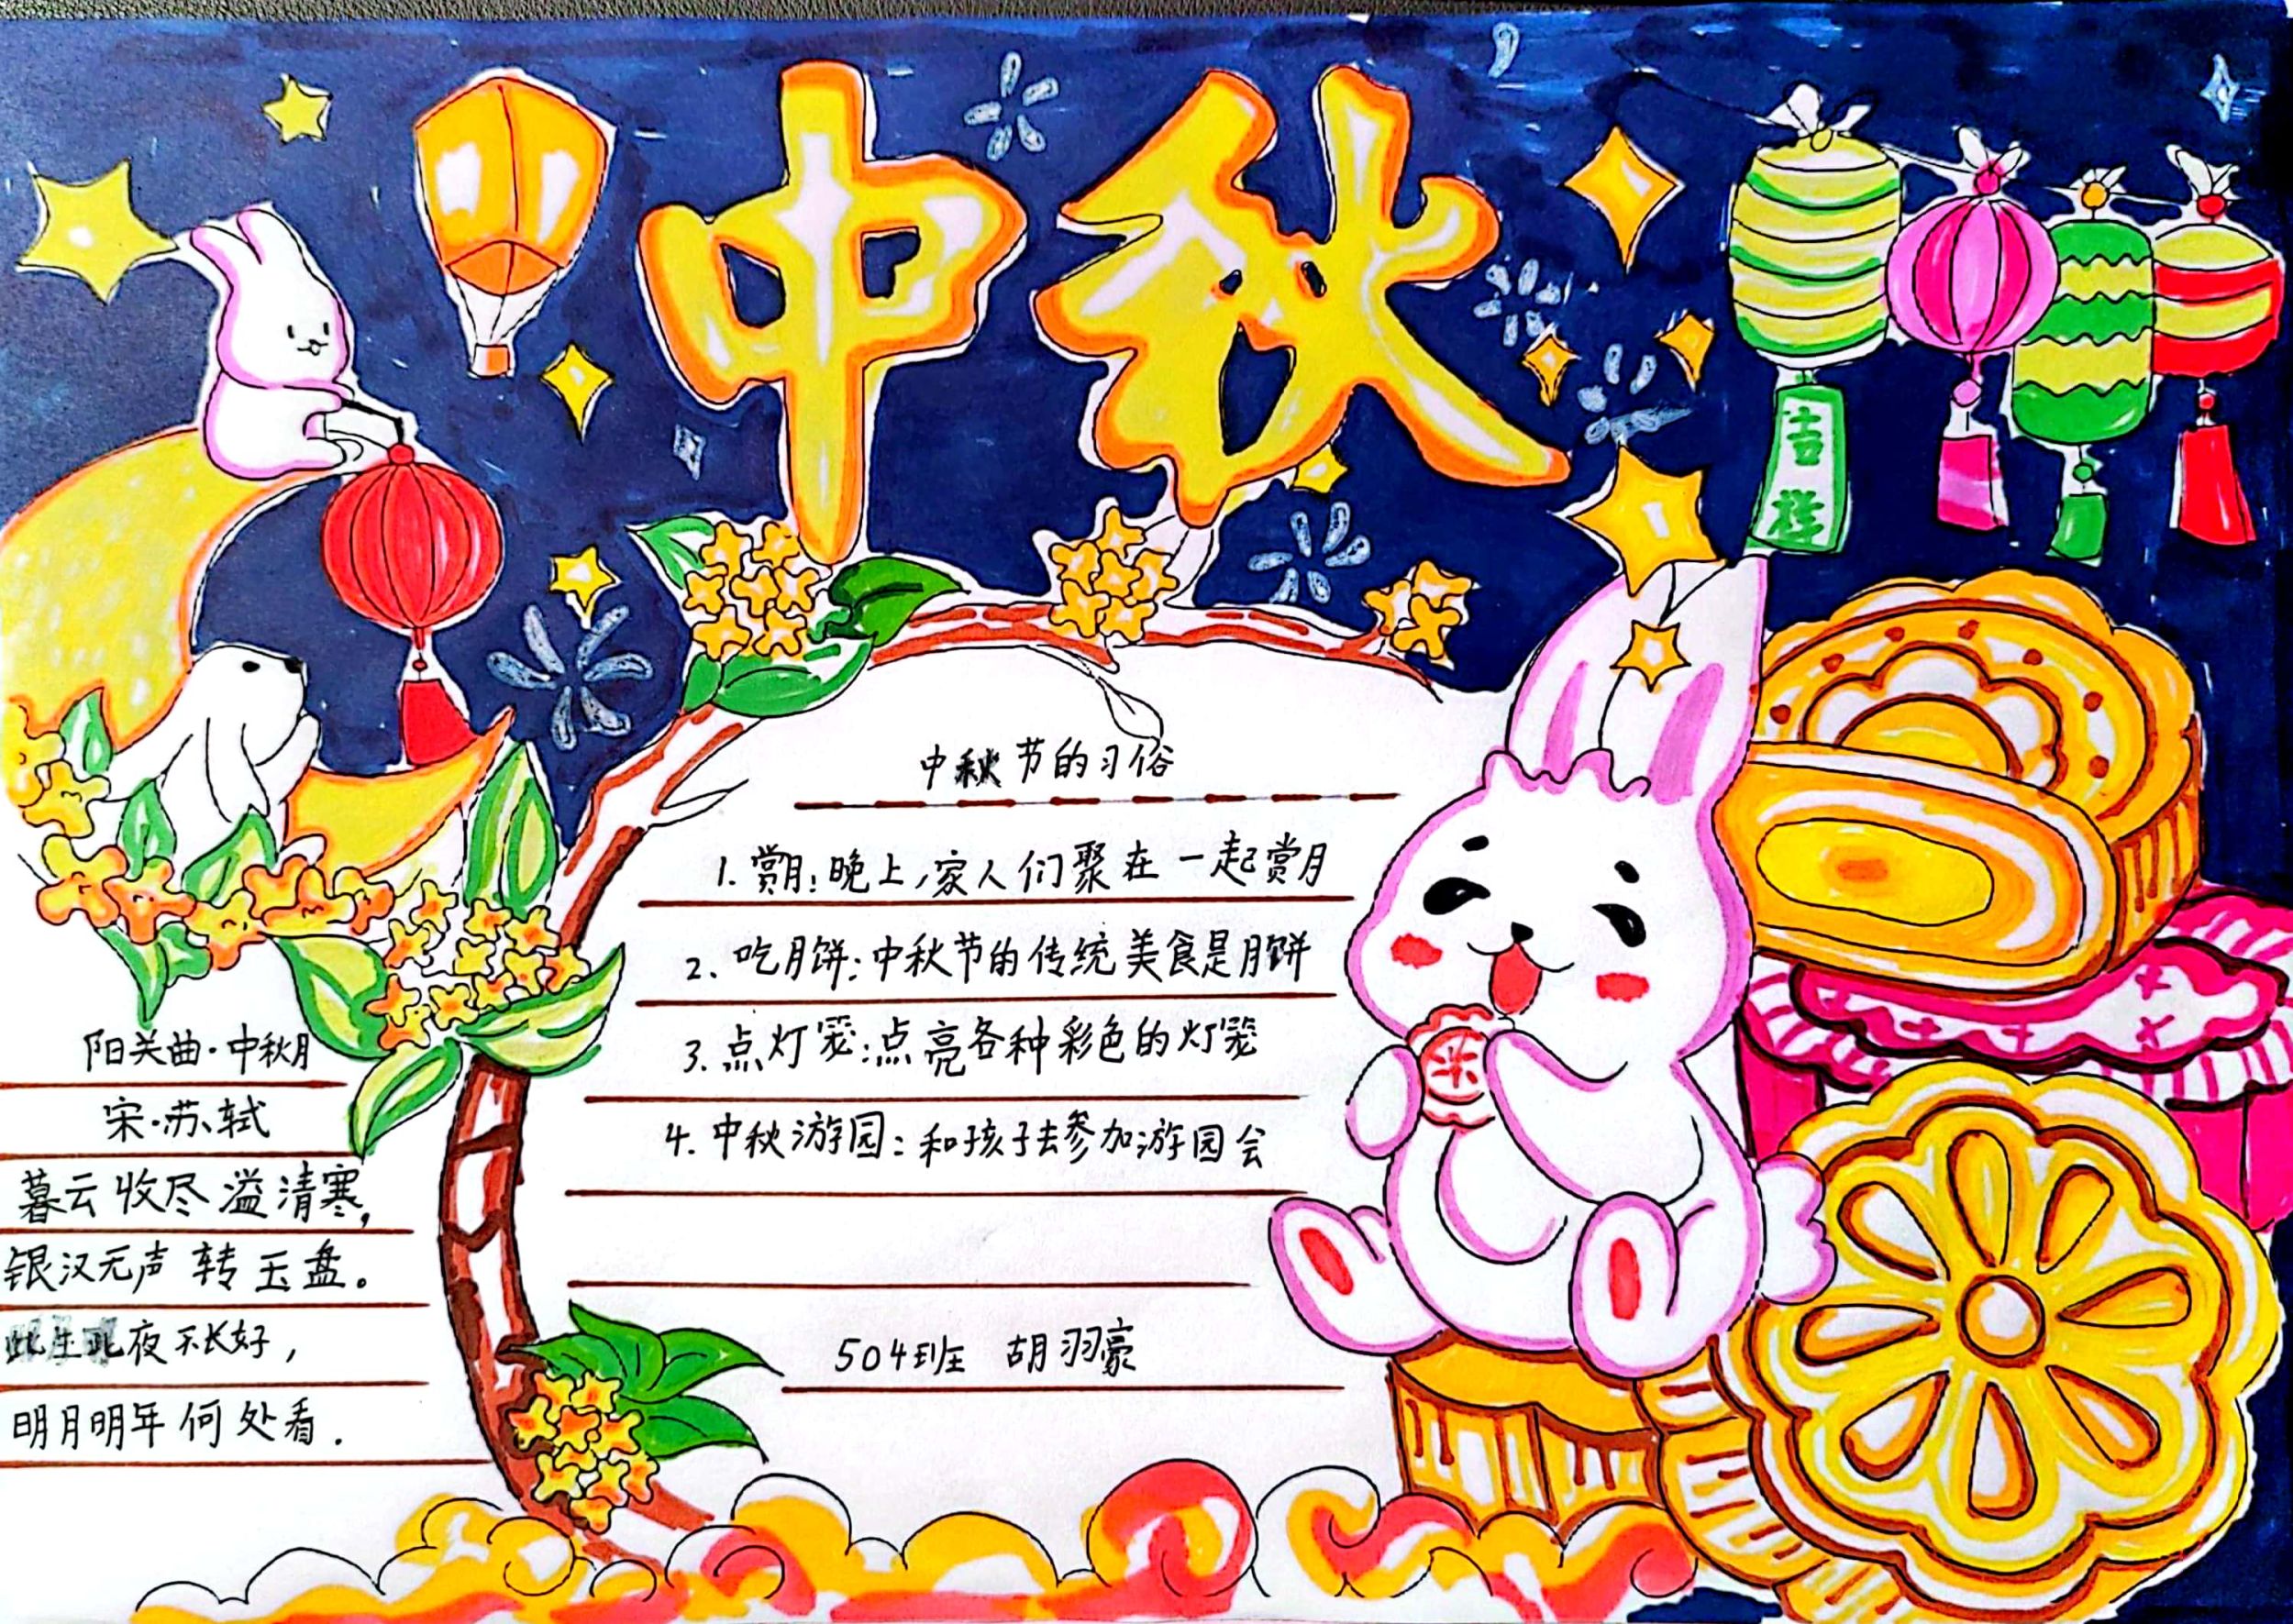 中秋
吉祥
中秋节的习俗
1. 赏月：晚上，家人们聚在一起赏月
2. 吃月饼：中秋节的传统美食是月饼
3. 点灯笼：点亮各种彩色的灯笼
4. 中秋游园：和孩子去参加游园会
504班 胡羽豪
阳关曲·中秋月
宋·苏轼
暮云收尽溢清寒，
银汉无声转玉盘。
此生此夜不长好，
明月明年何处看.